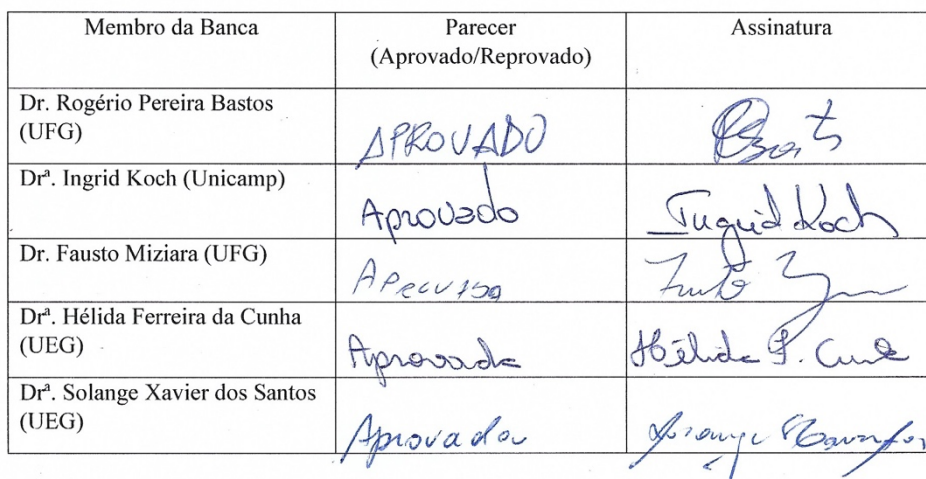 Membro da Banca
Parecer
(Aprovado/Reprovado)
Assinatura
Dr. Rogério Pereira Bastos
(UFG)
APROVADO
Drª. Ingrid Koch (Unicamp)
Aprovado
Ingrid Koch
Dr. Fausto Miziara (UFG)
Drª. Hélida Ferreira da Cunha
(UEG)
Aprovada
Hélida F. Cunha
Drª. Solange Xavier dos Santos
(UEG)
Aprovada